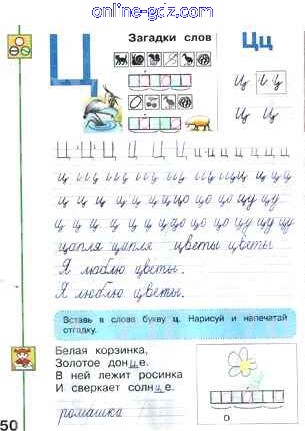 online-gdz.com
Загадки слов
Цц
Ц
ц ц ц
ц ц
Ц Ц Ц Ц Ц Ц ц ц ц ц ц ц ц
ц ц цо цо цу цу
ц ц цо цо цо цу цу
цапля цапля цветы цветы
Я люблю цветы.
Я люблю цветы.
Вставь в слова букву ц. Нарисуй и напечатай
отгадку.
Белая корзинка,
Золотое донце.
В ней лежит росинка
И сверкает солнце.
ромашка
о
50